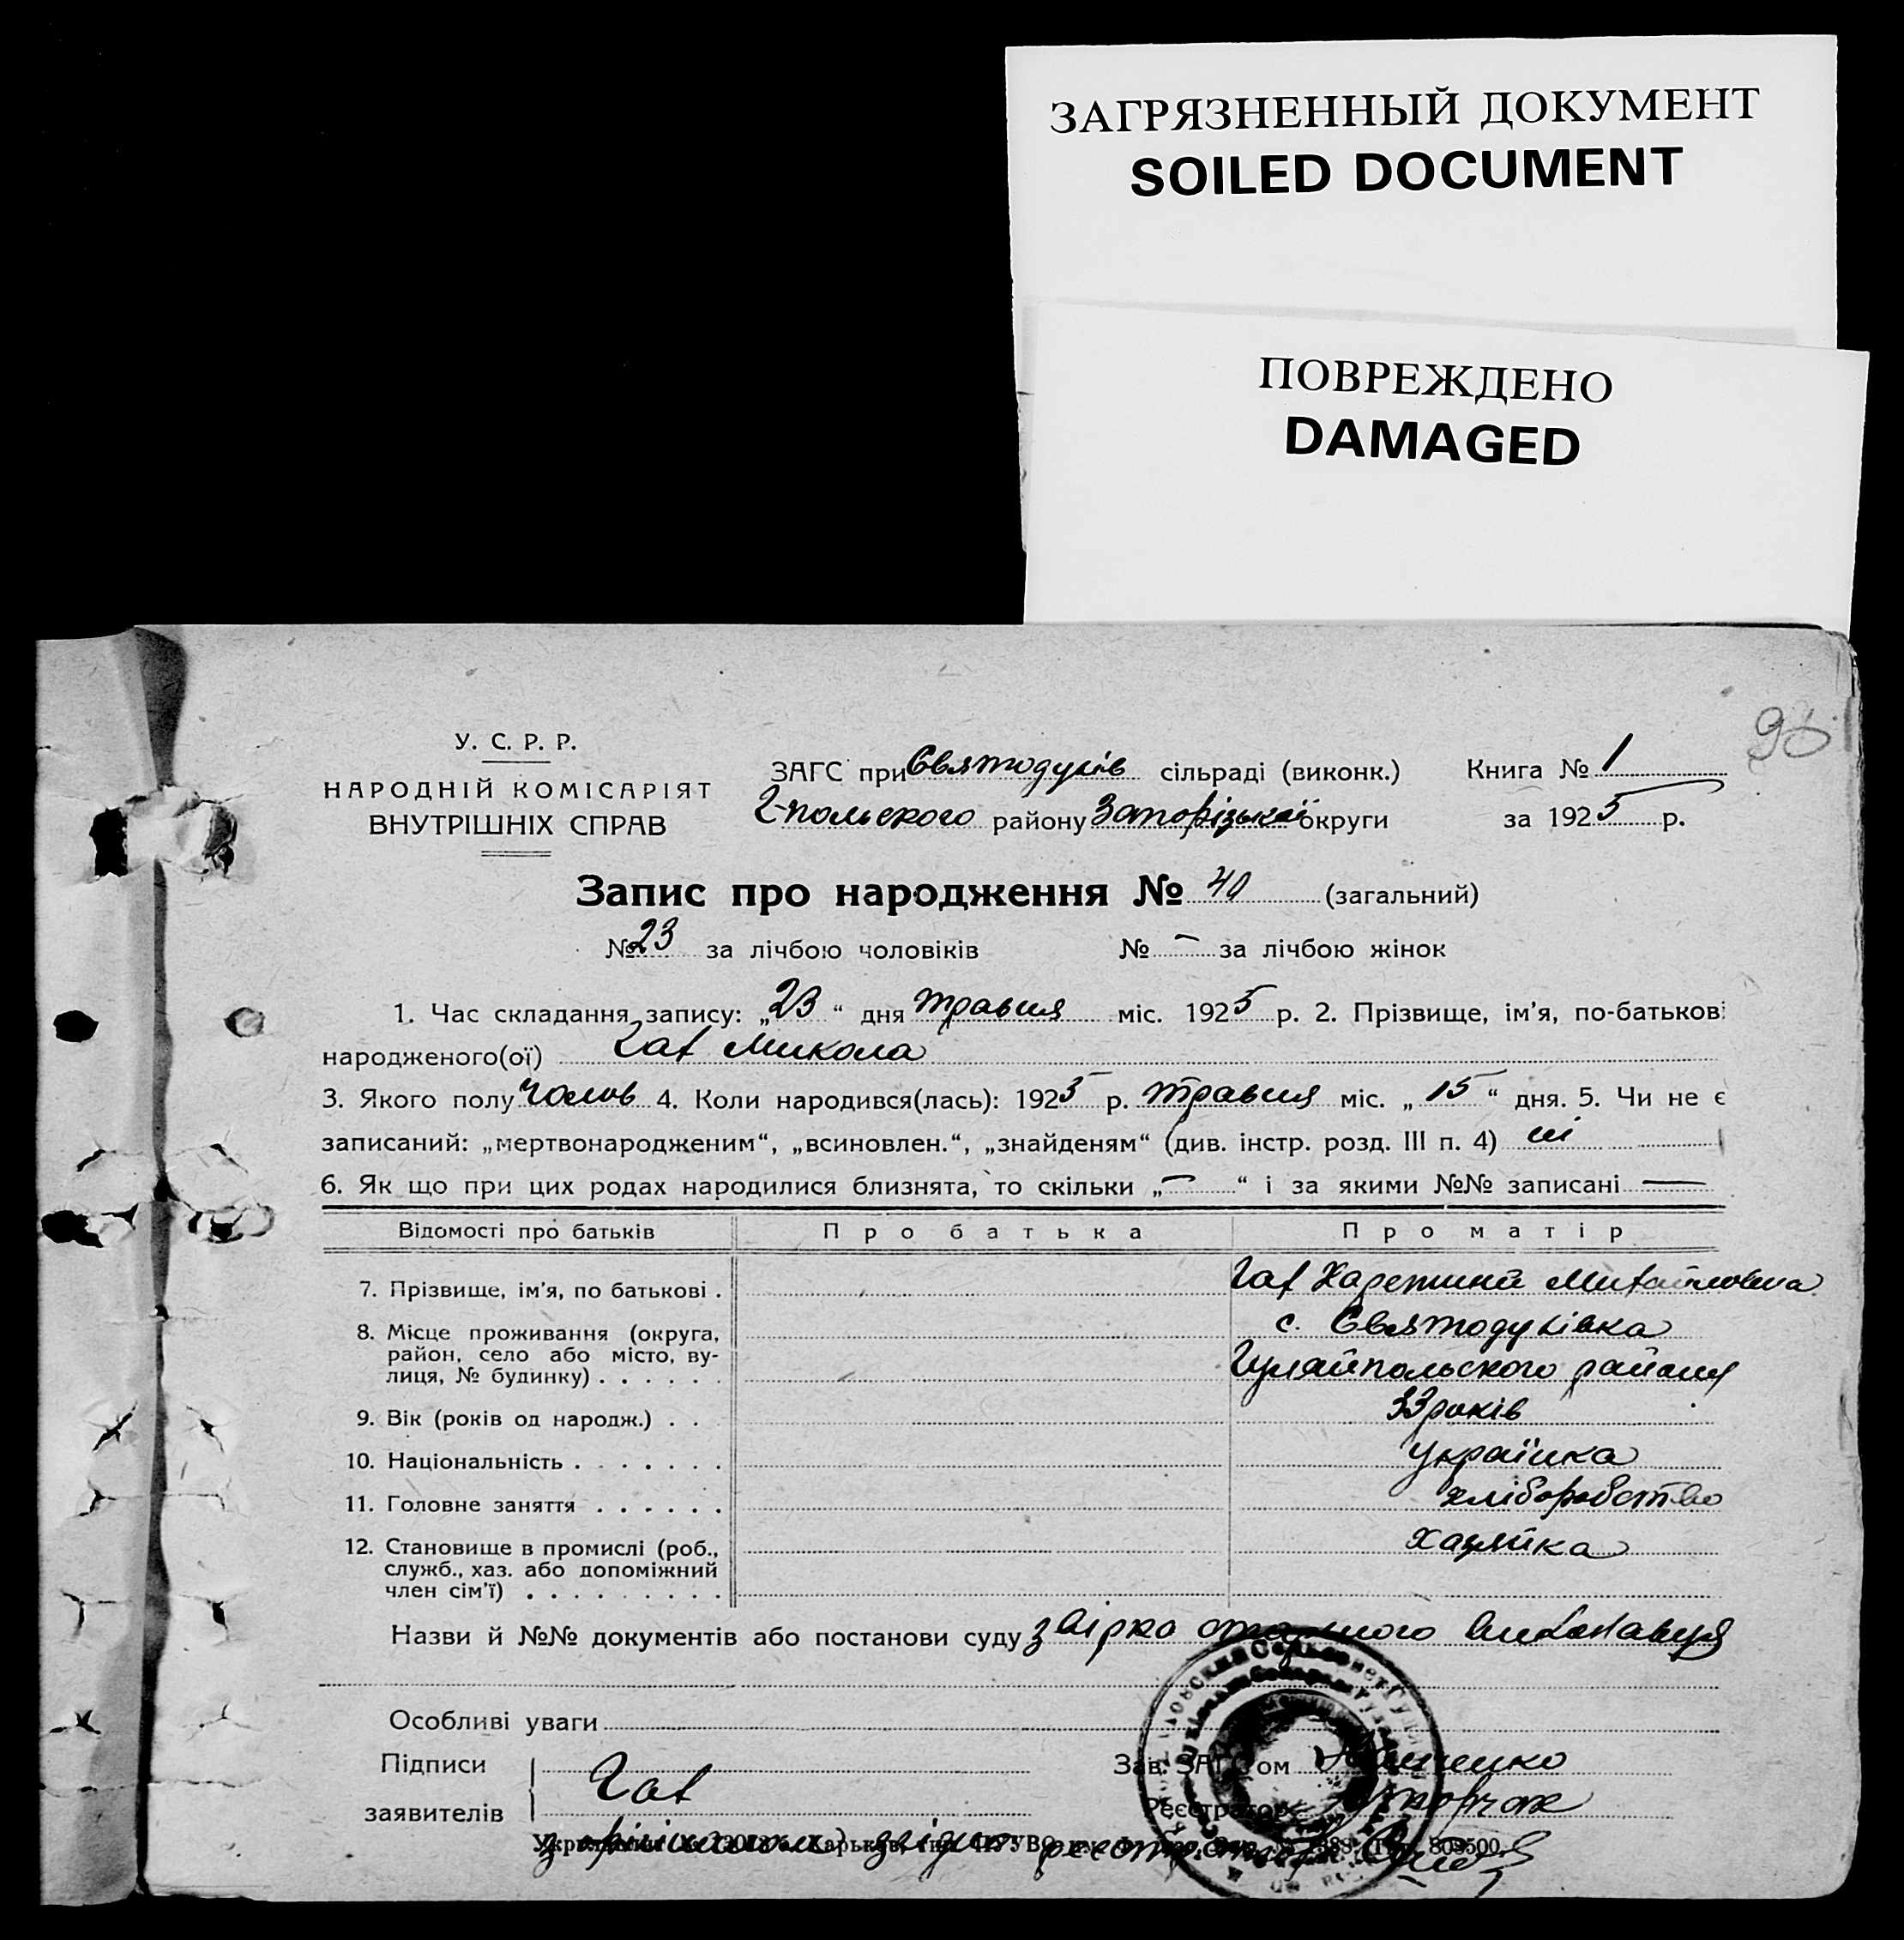 ЗАГРЯЗНЕННЫЙ ДОКУМЕНТ
SOILED DOCUMENT
ПОВРЕЖДЕНО
DAMAGED
У. С. Р. Р.
НАРОДНІЙ КОМІСАРІЯТ
ВНУТРІШНІХ СПРАВ
ЗАГС при Святодухів сільраді (виконк.)
Г-польского району Запорізької округи
Книга № 1
за 1925 р.
Запис про народження № 40 (загальний)
№ 23 за лічбою чоловіків № – за лічбою жінок
1. Час складання запису: „23“ дня травня міс. 1925 р. 2. Прізвище, ім'я, по-батькові
народженого(ої) Гат Микола
3. Якого полу чолов 4. Коли народився(лась): 1925 р. травня міс. „15“ дня. 5. Чи не є
записаний: „мертвонародженим“, „всиновлен.“, „знайденям“ (див. інстр. розд. III п. 4) ні
6. Як що при цих родах народилися близнята, то скільки „–“ і за якими №№ записані —
Відомості про батьків Про батька Про матір
7. Прізвище, ім'я, по батькові . Гат Михайловна
8. Місце проживання (округа, с. Святодухівка
район, село або місто, ву-
лиця, № будинку) . . . . . . Гуляйпольского района
9. Вік (років од народж.) . . 33 років
10. Національність . . . . . . . українка
11. Головне заняття . . . . . . хліборобство
12. Становище в промислі (роб., хазяйка
служб., хаз. або допоміжний
член сім'ї) . . . . . . . . .
Назви й №№ документів або постанови суду виконавця
Особливі уваги
Підписи
заявителів
Гат
Зав. ЗАГСом
Реєстратор
з орігіналом згідно